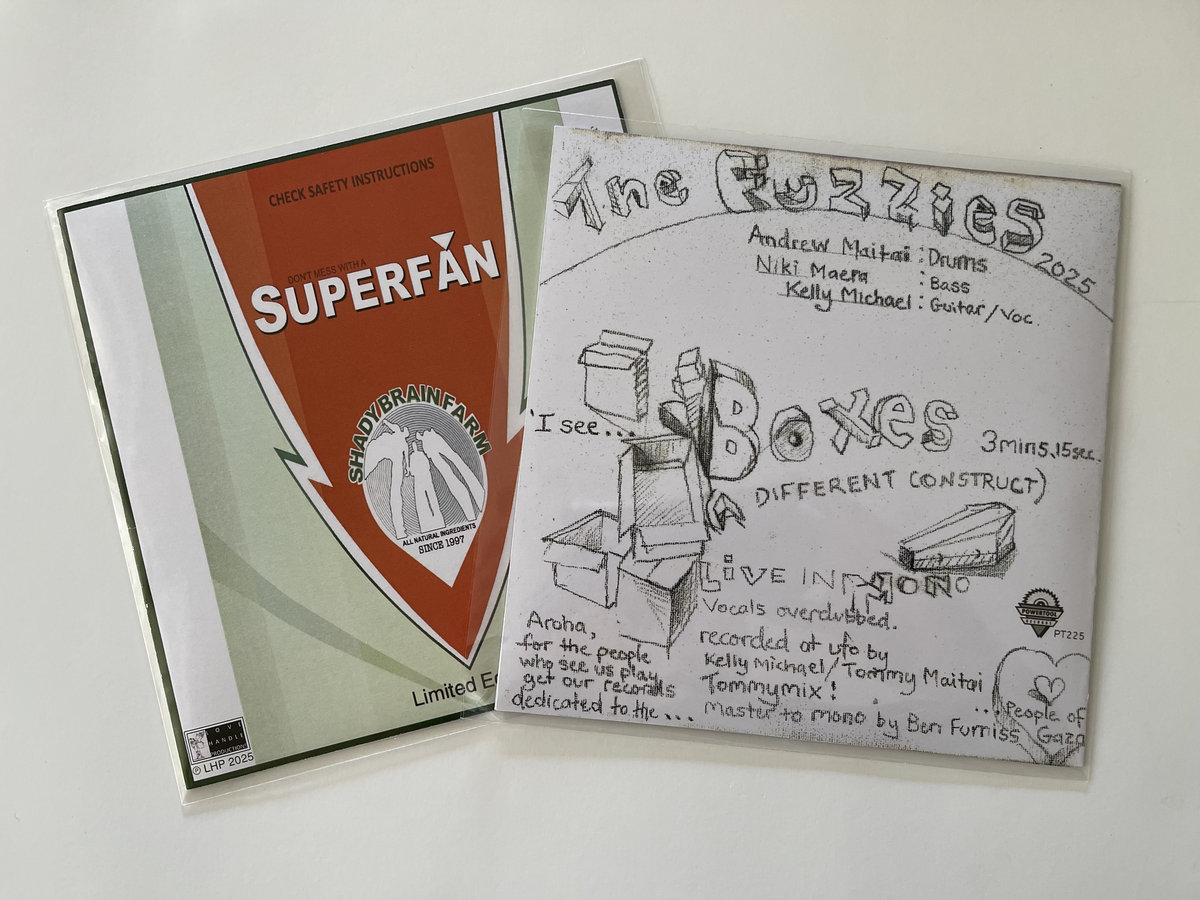 CHECK SAFETY INSTRUCTIONS
DON'T MESS WITH A
SUPERFAN
SHADY BRAIN FARM
ALL NATURAL INGREDIENTS
SINCE 1997
Limited Ed
LOVE
HANDLE
PRODUCTIONS
℗ LHP 2025
The Fuzzies
2025
Andrew Maitai : Drums
Niki Maera : Bass
Kelly Michael : Guitar/Voc.
'I see...
Boxes
3mins,15sec.
(A DIFFERENT CONSTRUCT)
LIVE IN MONO
Vocals overdubbed.
recorded at ufo by
Kelly Michael/Tommy Maitai
Tommymix!
Master to mono by Ben Furniss
Aroha,
for the people
who see us play,
get our records
dedicated to the...
...People of
Gaza
POWERTOOL
RECORDS
PT225